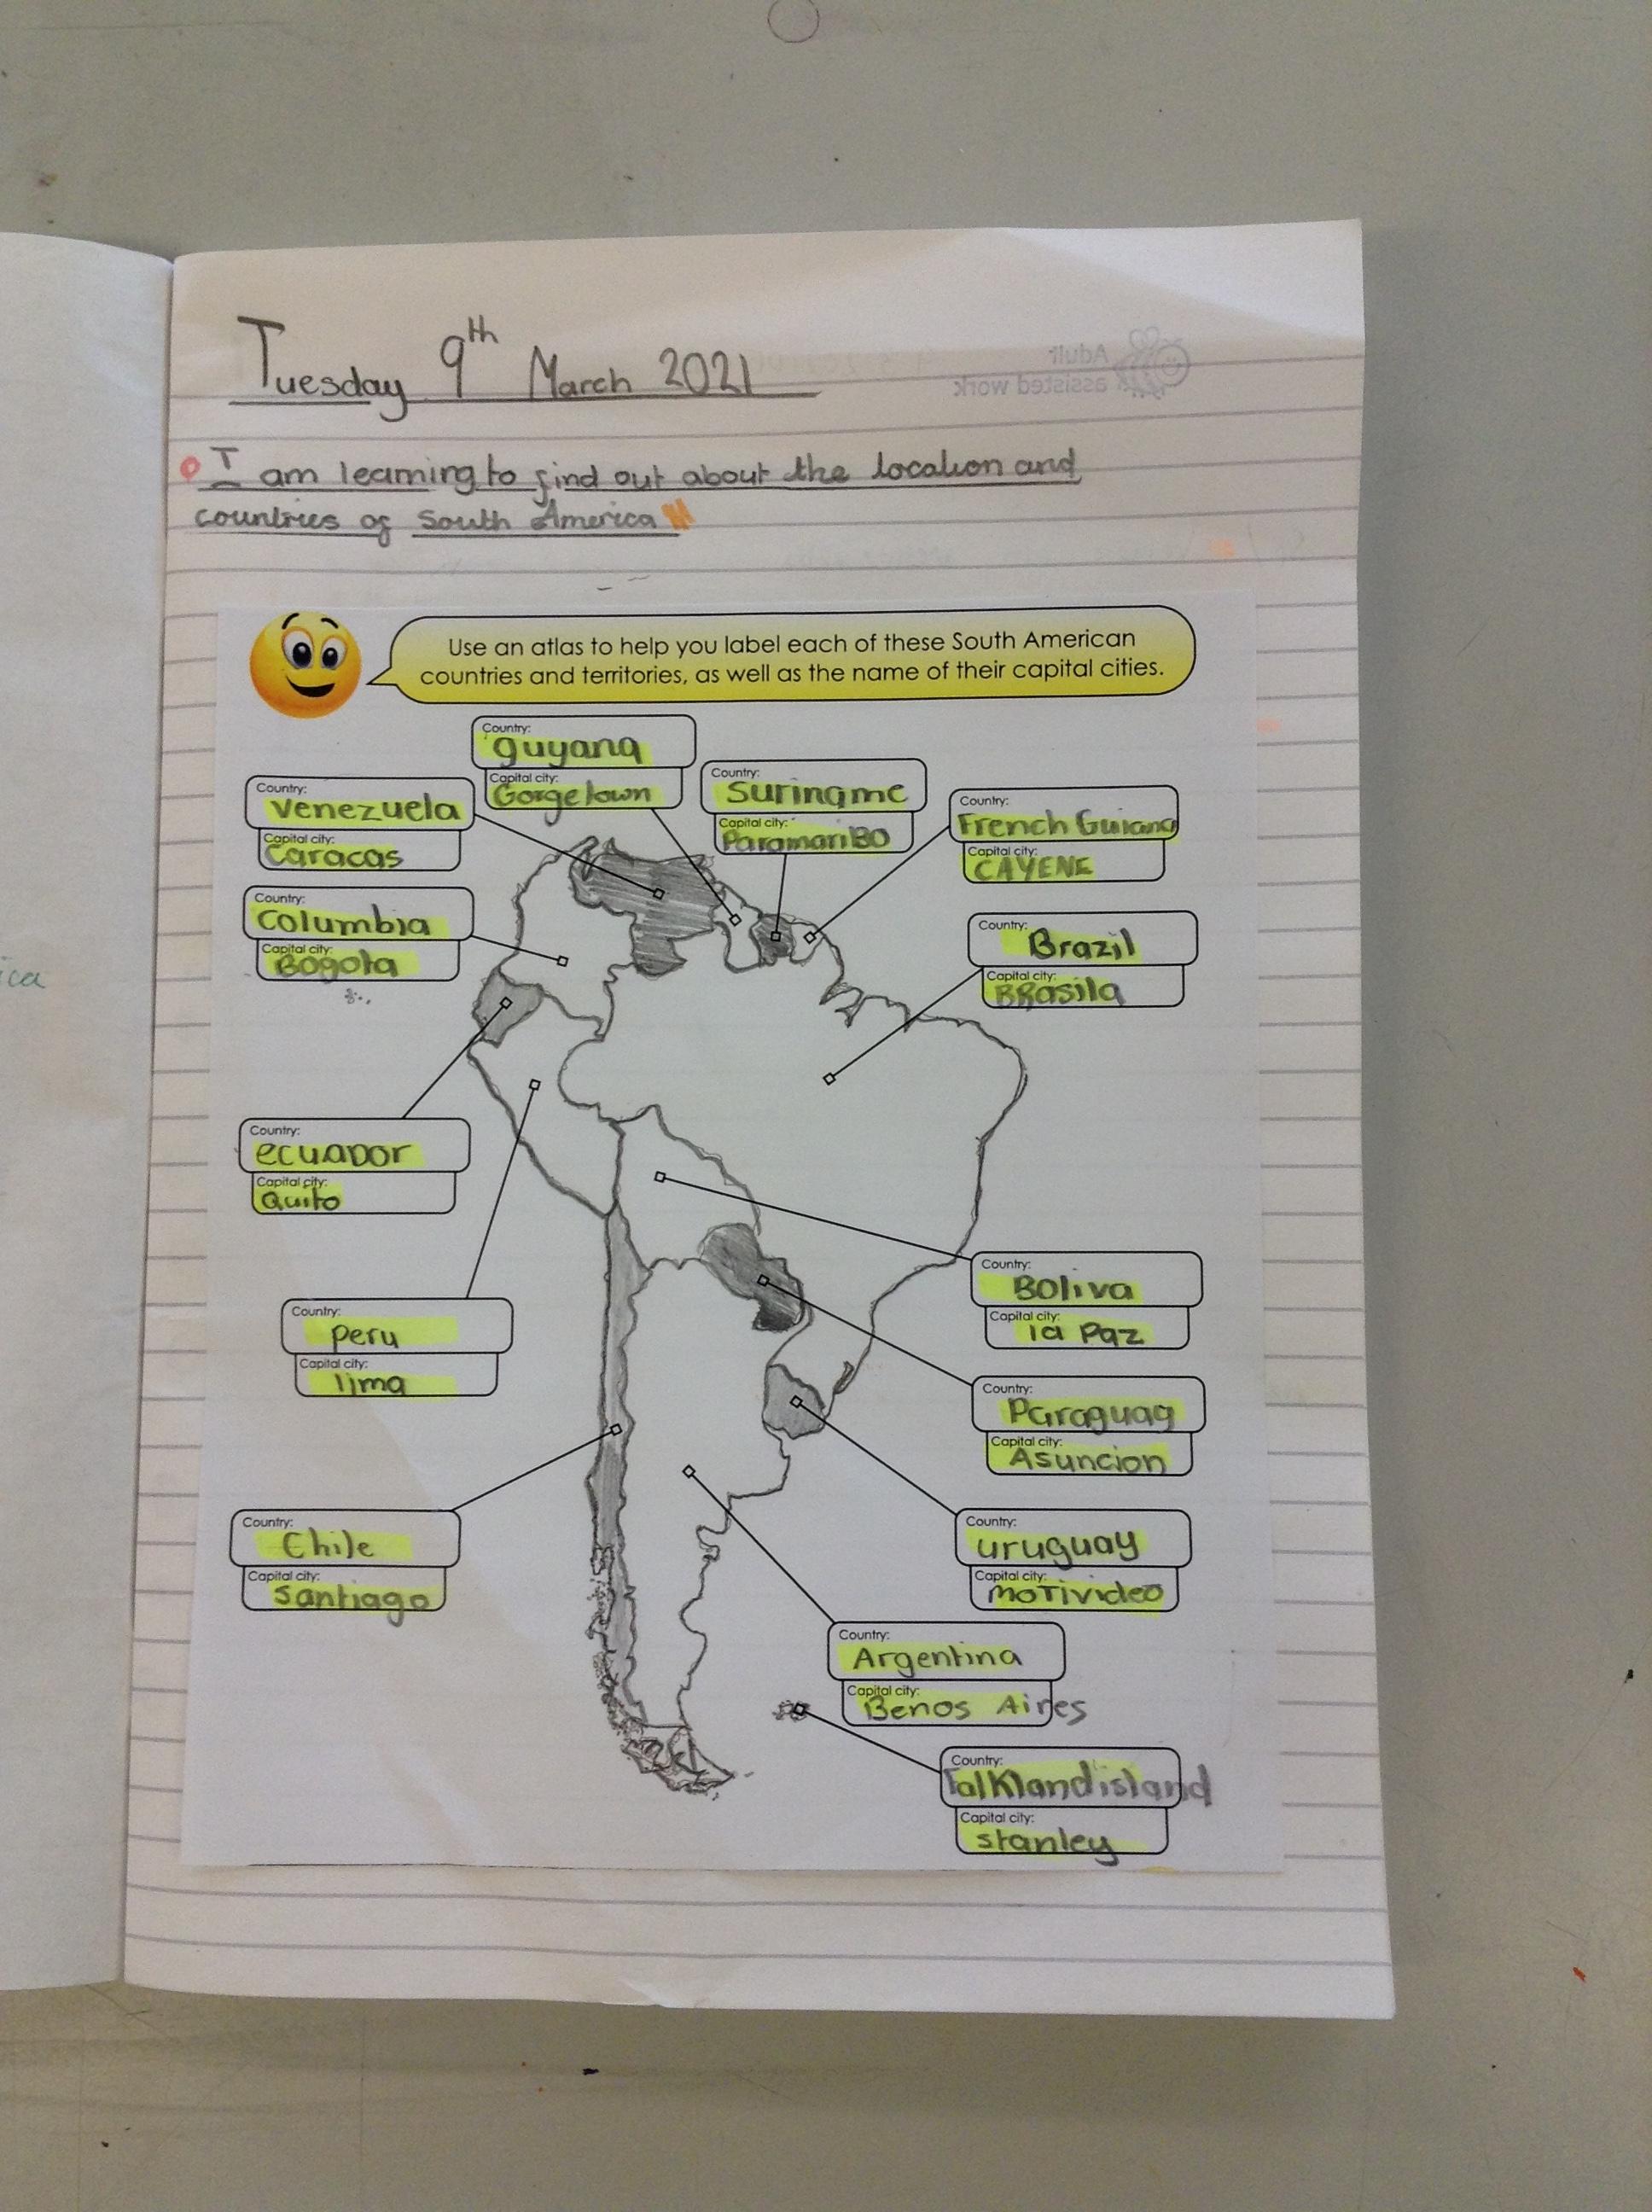 Tuesday 9th March 2021
Adult
assisted work
I am learning to find out about the location and
countries of South America
Use an atlas to help you label each of these South American
countries and territories, as well as the name of their capital cities.
Country:
guyana
Capital city:
Gorgetown
Country:
Suriname
Capital city:
ParamariBO
Country:
Venezuela
Capital city:
Caracas
Country:
French Guiana
Capital city:
CAYENE
Country:
Columbia
Capital city:
Bogota
Country:
Brazil
Capital city:
BRasila
Country:
ecuador
Capital city:
Quito
Country:
Boliva
Capital city:
la Paz
Country:
peru
Capital city:
lima
Country:
Paraguag
Capital city:
Asuncion
Country:
Chile
Capital city:
Santiago
Country:
uruguay
Capital city:
moTivideo
Country:
Argentina
Capital city:
Benos Aires
Country:
Falklandisland
Capital city:
stanley
ica